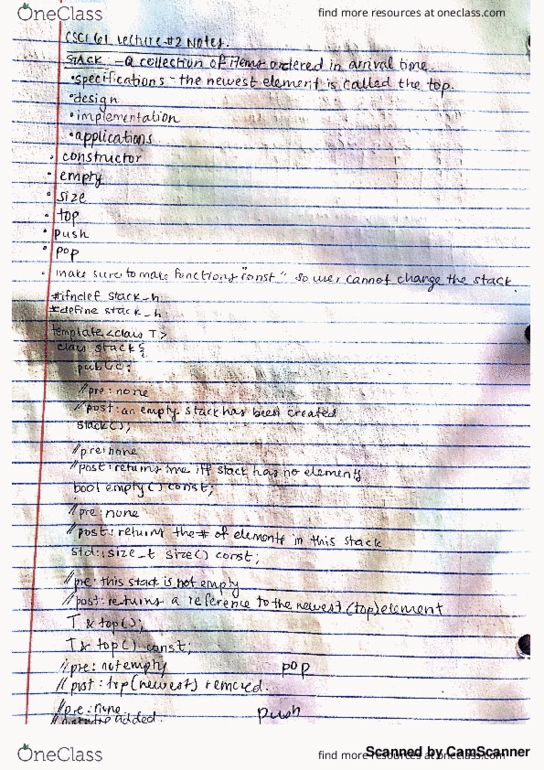 OneClass
find more resources at oneclass.com
CSCI 61 Lecture #2 Notes.
Stack - a collection of items ordered in arrival time
• specifications - the newest element is called the top.
• design
• implementation
• applications
• constructor
• empty
• size
• top
• push
• pop
• make sure to make functions "const" so user cannot change the stack.
#ifndef stack_h
#define stack_h
template <class T>
class stack {
public:
//pre: none
//post: an empty stack has been created
stack();
//pre: none
//post: returns true iff stack has no elements
bool empty() const;
//pre: none
//post: returns the # of elements in this stack
std::size_t size() const;
//pre: this stack is not empty
//post: returns a reference to the newest (top) element
T& top();
T& top() const;
//pre: not empty pop
//post: top (newest) removed.
//pre: none push
added.
OneClass
find more resources at oneclass.com
Scanned by CamScanner